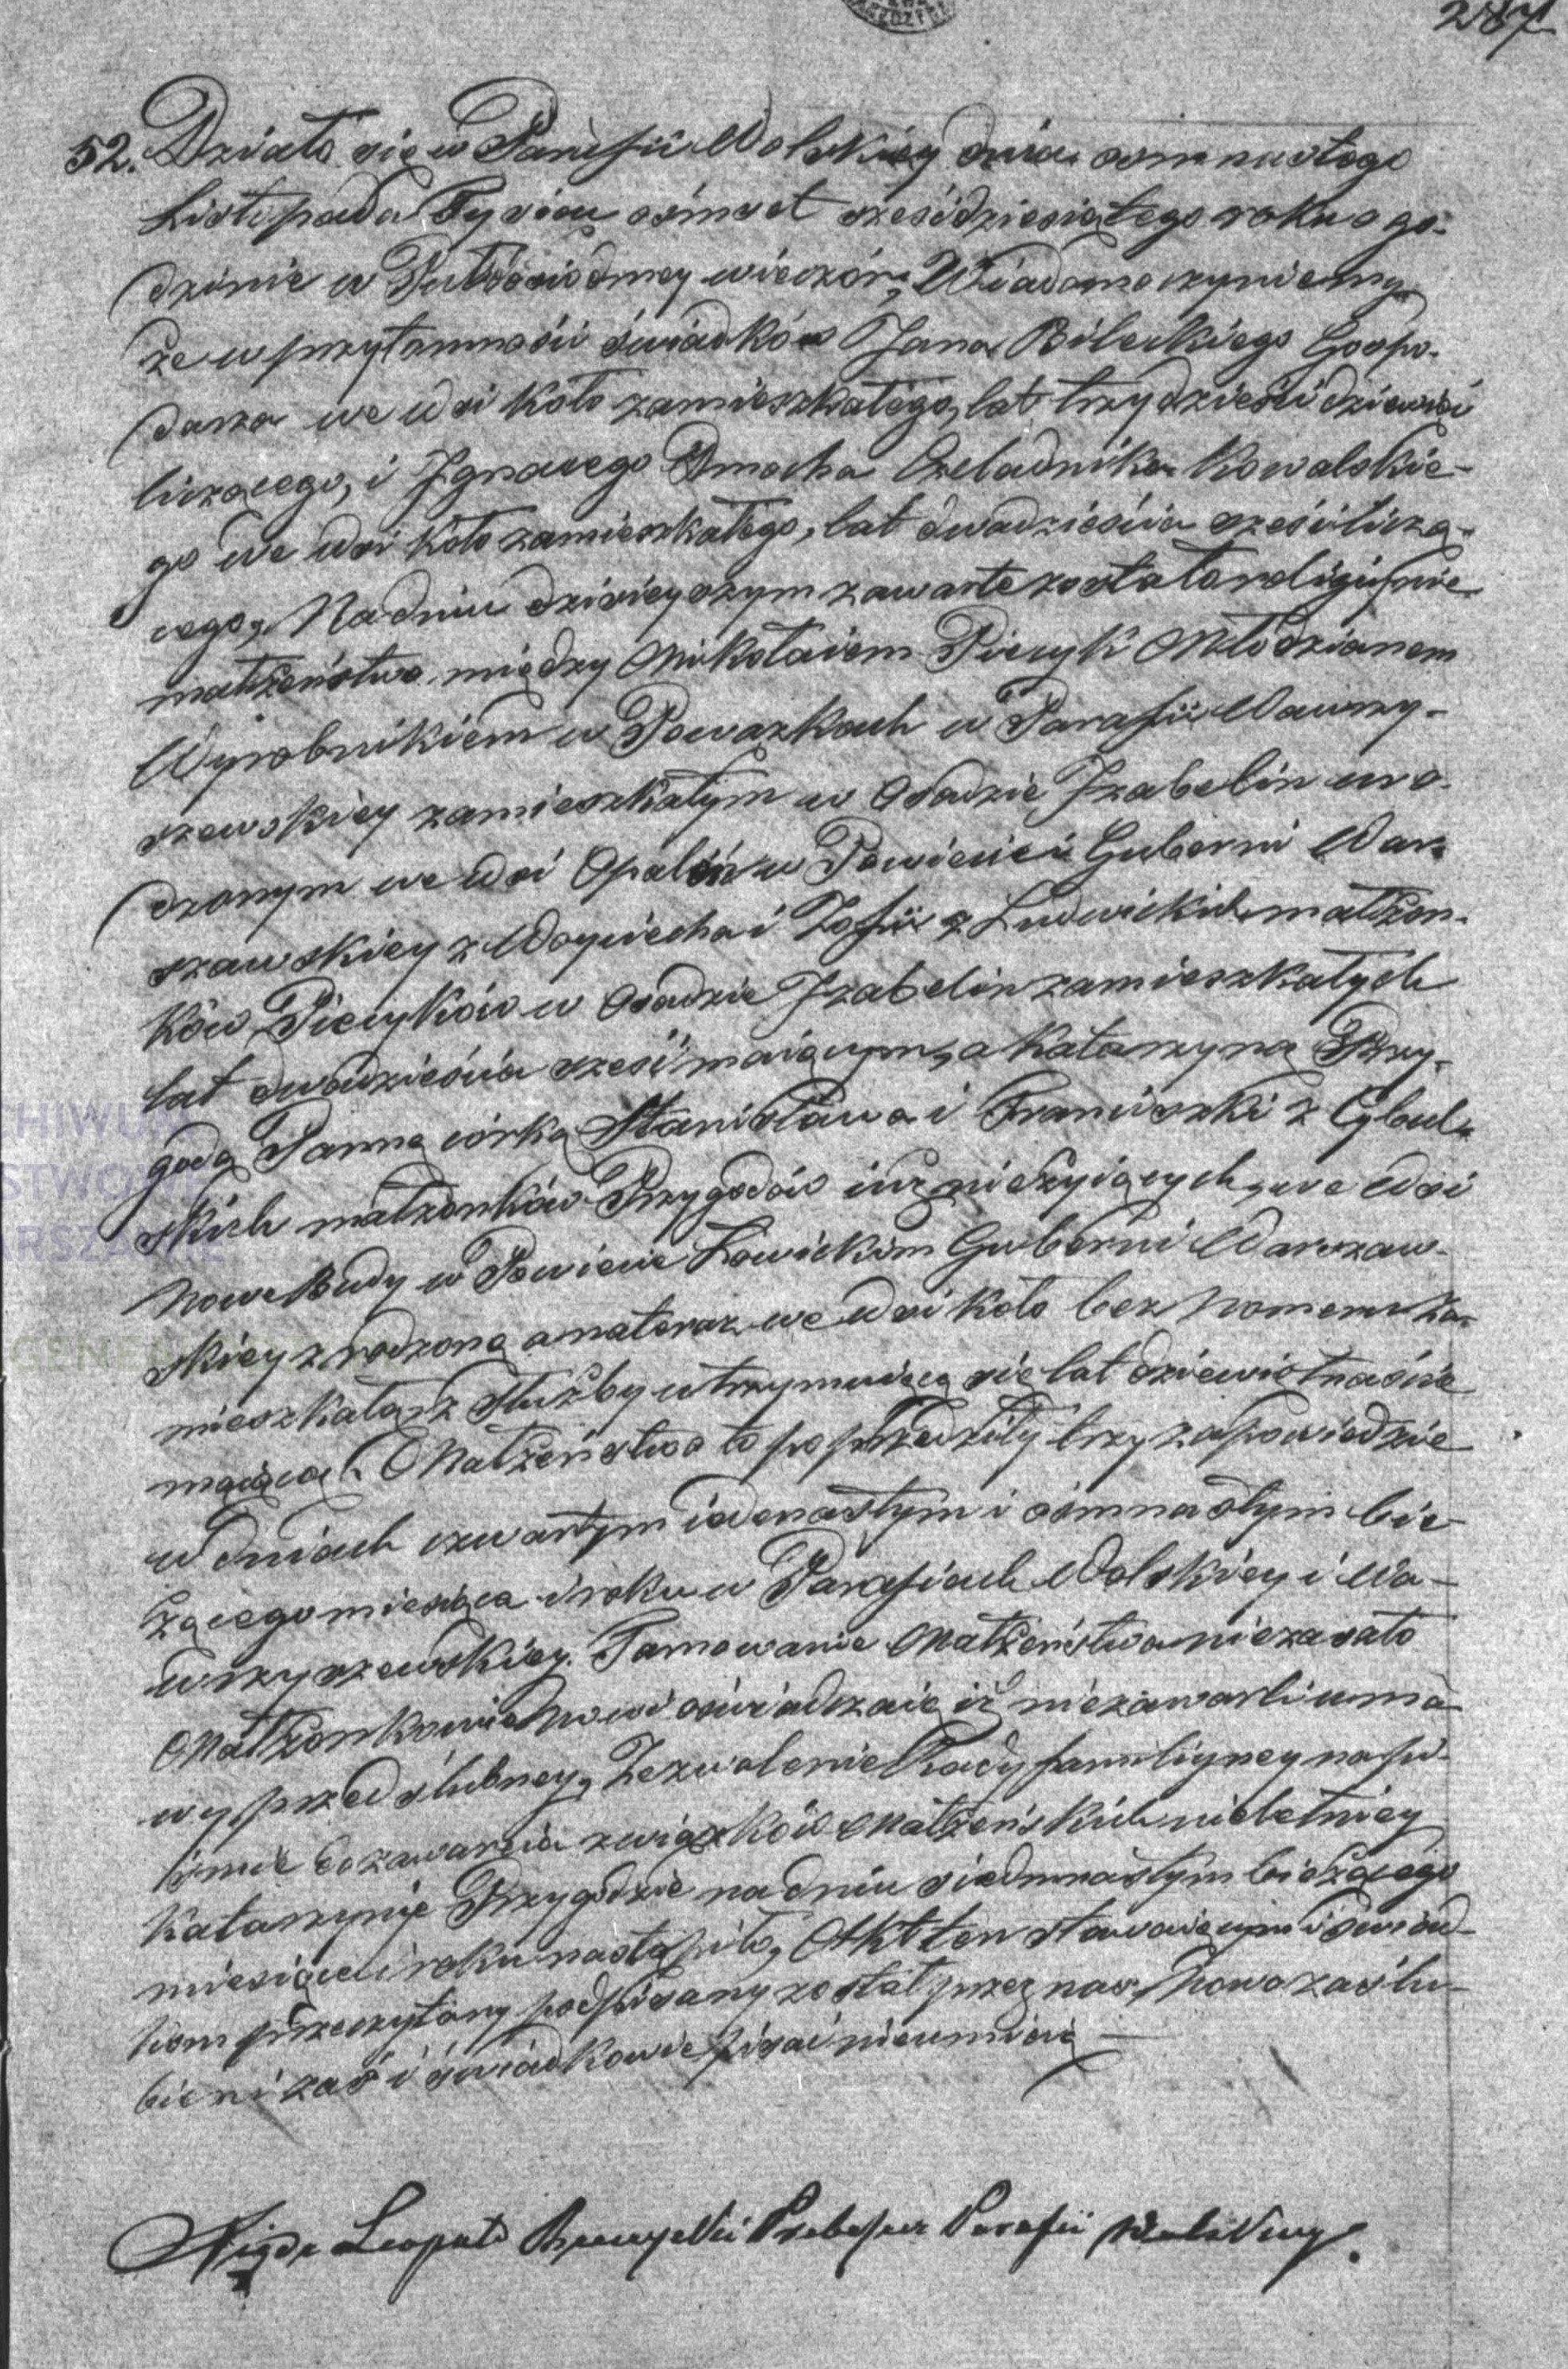 287
52. Działo się w Parafii Wolskiey dnia osmnastego
Listopada Tysiąc ośmset sześćdziesiątego roku o go-
dzinie w Pułdosiodmey wieczór; Wiadomo czyniemy
że w przytomności świadków Jana Bileckiego Gospo-
darza we wsi Koło zamieszkałego, lat trzydzieści dziewięć
liczącego, i Ignacego Dmocha Czeladnika Kowalskie-
go we wsi Koło zamieszkałego, lat dwadzieścia sześć liczą-
cego, Na dniu dzisieyszym zawarte zostało religijnie
małżeństwo między Mikołaiem Piecyk Młodzianem
Wyrobnikiem w Powązkach w Parafii Wawrzy-
szewskiey zamieszkałym w Osadzie Izabelin uro-
dzonym we wsi Opaleń w Powiecie i Guberni War-
szawskiey z Woyciecha i Zofii z Ludwickich małżon-
ków Piecyków w Osadzie Izabelin zamieszkałych
lat dwadzieścia sześć maiącym, a Katarzyną Przy-
godą Panną córką Stanisława i Franciszki z Cybul-
skich małżonków Przygodów iuż nieżyiących, we wsi
Nowe Budy w Powiecie Łowickim Guberni Warszaw-
skiey zrodzoną a na teraz we wsi Koło bez Nomeru za-
mieszkałą, z służby utrzymuiącą się lat dziewiętnaście
maiącą. Małżeństwo to poprzedziły trzy zapowiedzie
w dniach czwartym iedenastym i osmnastym bie-
żącego miesiąca i roku w Parafiach Wolskiey i Wa-
wrzyszewskiey. Tamowanie Małżeństwa niezaszło
Małżonkowie Nowi oświadczaią iż niezawarli umo-
wy przedślubney, Zezwolenie Rady familiyney na pi-
śmie do zawarcia związków Małżeńskich nieletniey
Katarzynie Przygodzie na dniu siedmnastym bieżącego
miesiąca i roku nastąpiło, Akt ten stawaiącym i świad-
kom przeczytany podpisany został przez nas, Nowozaślu-
bieni zaś i świadkowie pisać nieumieią —
Xiądz Leopold Proboszcz Parafii Wolskiey.
ARCHIWUM
PAŃSTWOWE
WARSZAWIE